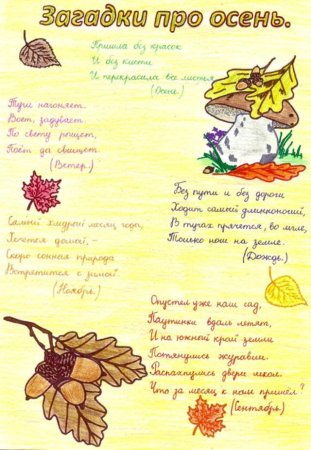 Загадки про осень.
Пришла без красок
И без кисти
И перекрасила все листья.
(Осень.)
Тучи нагоняет.
Воет, задувает.
По свету рыщет,
Поёт да свищет.
(Ветер.)
Без пути и без дороги
Ходит самый длинноногий,
В тучах прячется, во мгле,
Только ноги на земле.
(Дождь.)
Самый хмурый месяц года,
Хочется домой, –
Скоро сонная природа
Встретится с зимой.
(Ноябрь.)
Опустел уже наш сад,
Паутинки вдаль летят,
И на южный край земли
Потянулись журавли.
Распахнулись двери школ.
Что за месяц к нам пришёл?
(Сентябрь.)